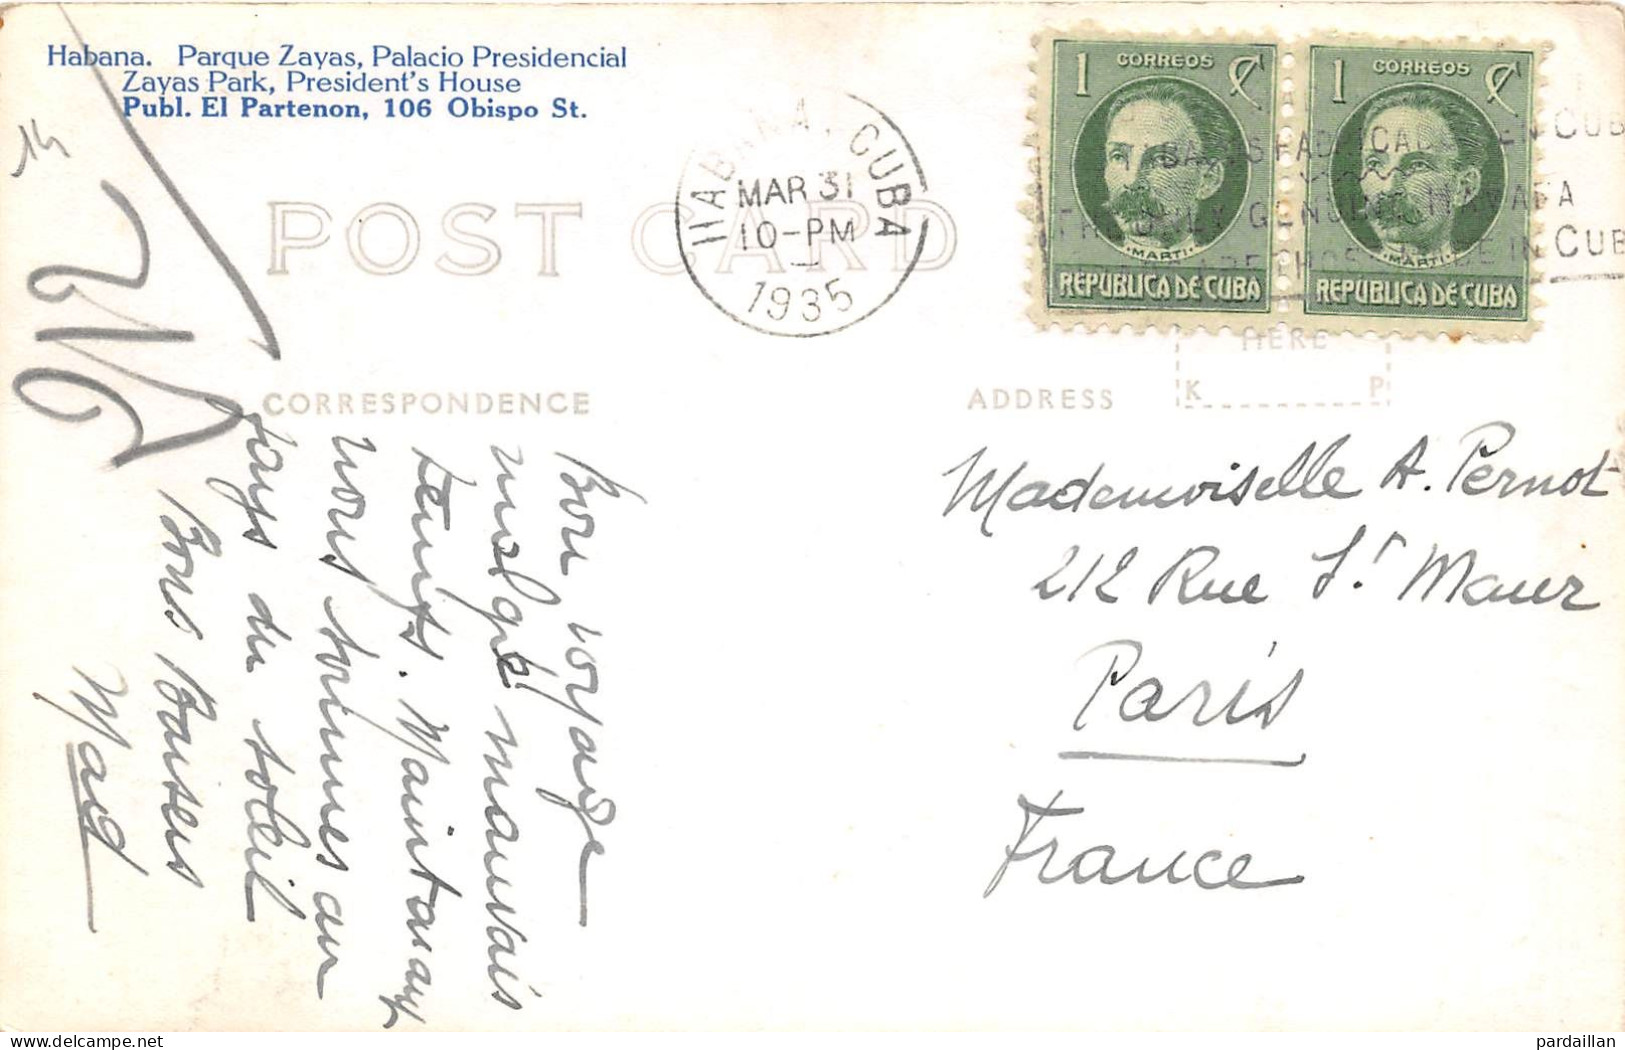 Habana. Parque Zayas, Palacio Presidencial
Zayas Park, President's House
Publ. El Partenon, 106 Obispo St.
POST CARD
HABANA, CUBA
MAR 31
10-PM
1935
1 CORREOS C
MARTI
REPUBLICA DE CUBA
1 CORREOS C
MARTI
REPUBLICA DE CUBA
EN CUB
GENUI HAVANA
DERECHOS MADE IN CUB
HERE
K P
CORRESPONDENCE
ADDRESS
Bon voyage
malgré mauvais
temps. Maintenant
nous sommes au
pays du soleil
Bons Baisers
Mad
Mademoiselle A. Pernot
212 Rue St Maur
Paris
France
pardaillan